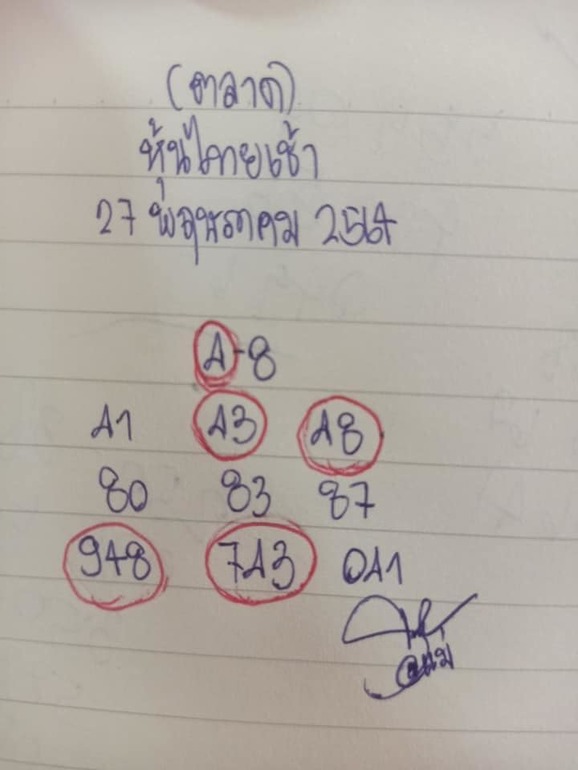 (ตลาด)
หุ้นไทยเช้า
27 พฤษภาคม 2564
4-8
41 43 48
80 83 87
948 743 041